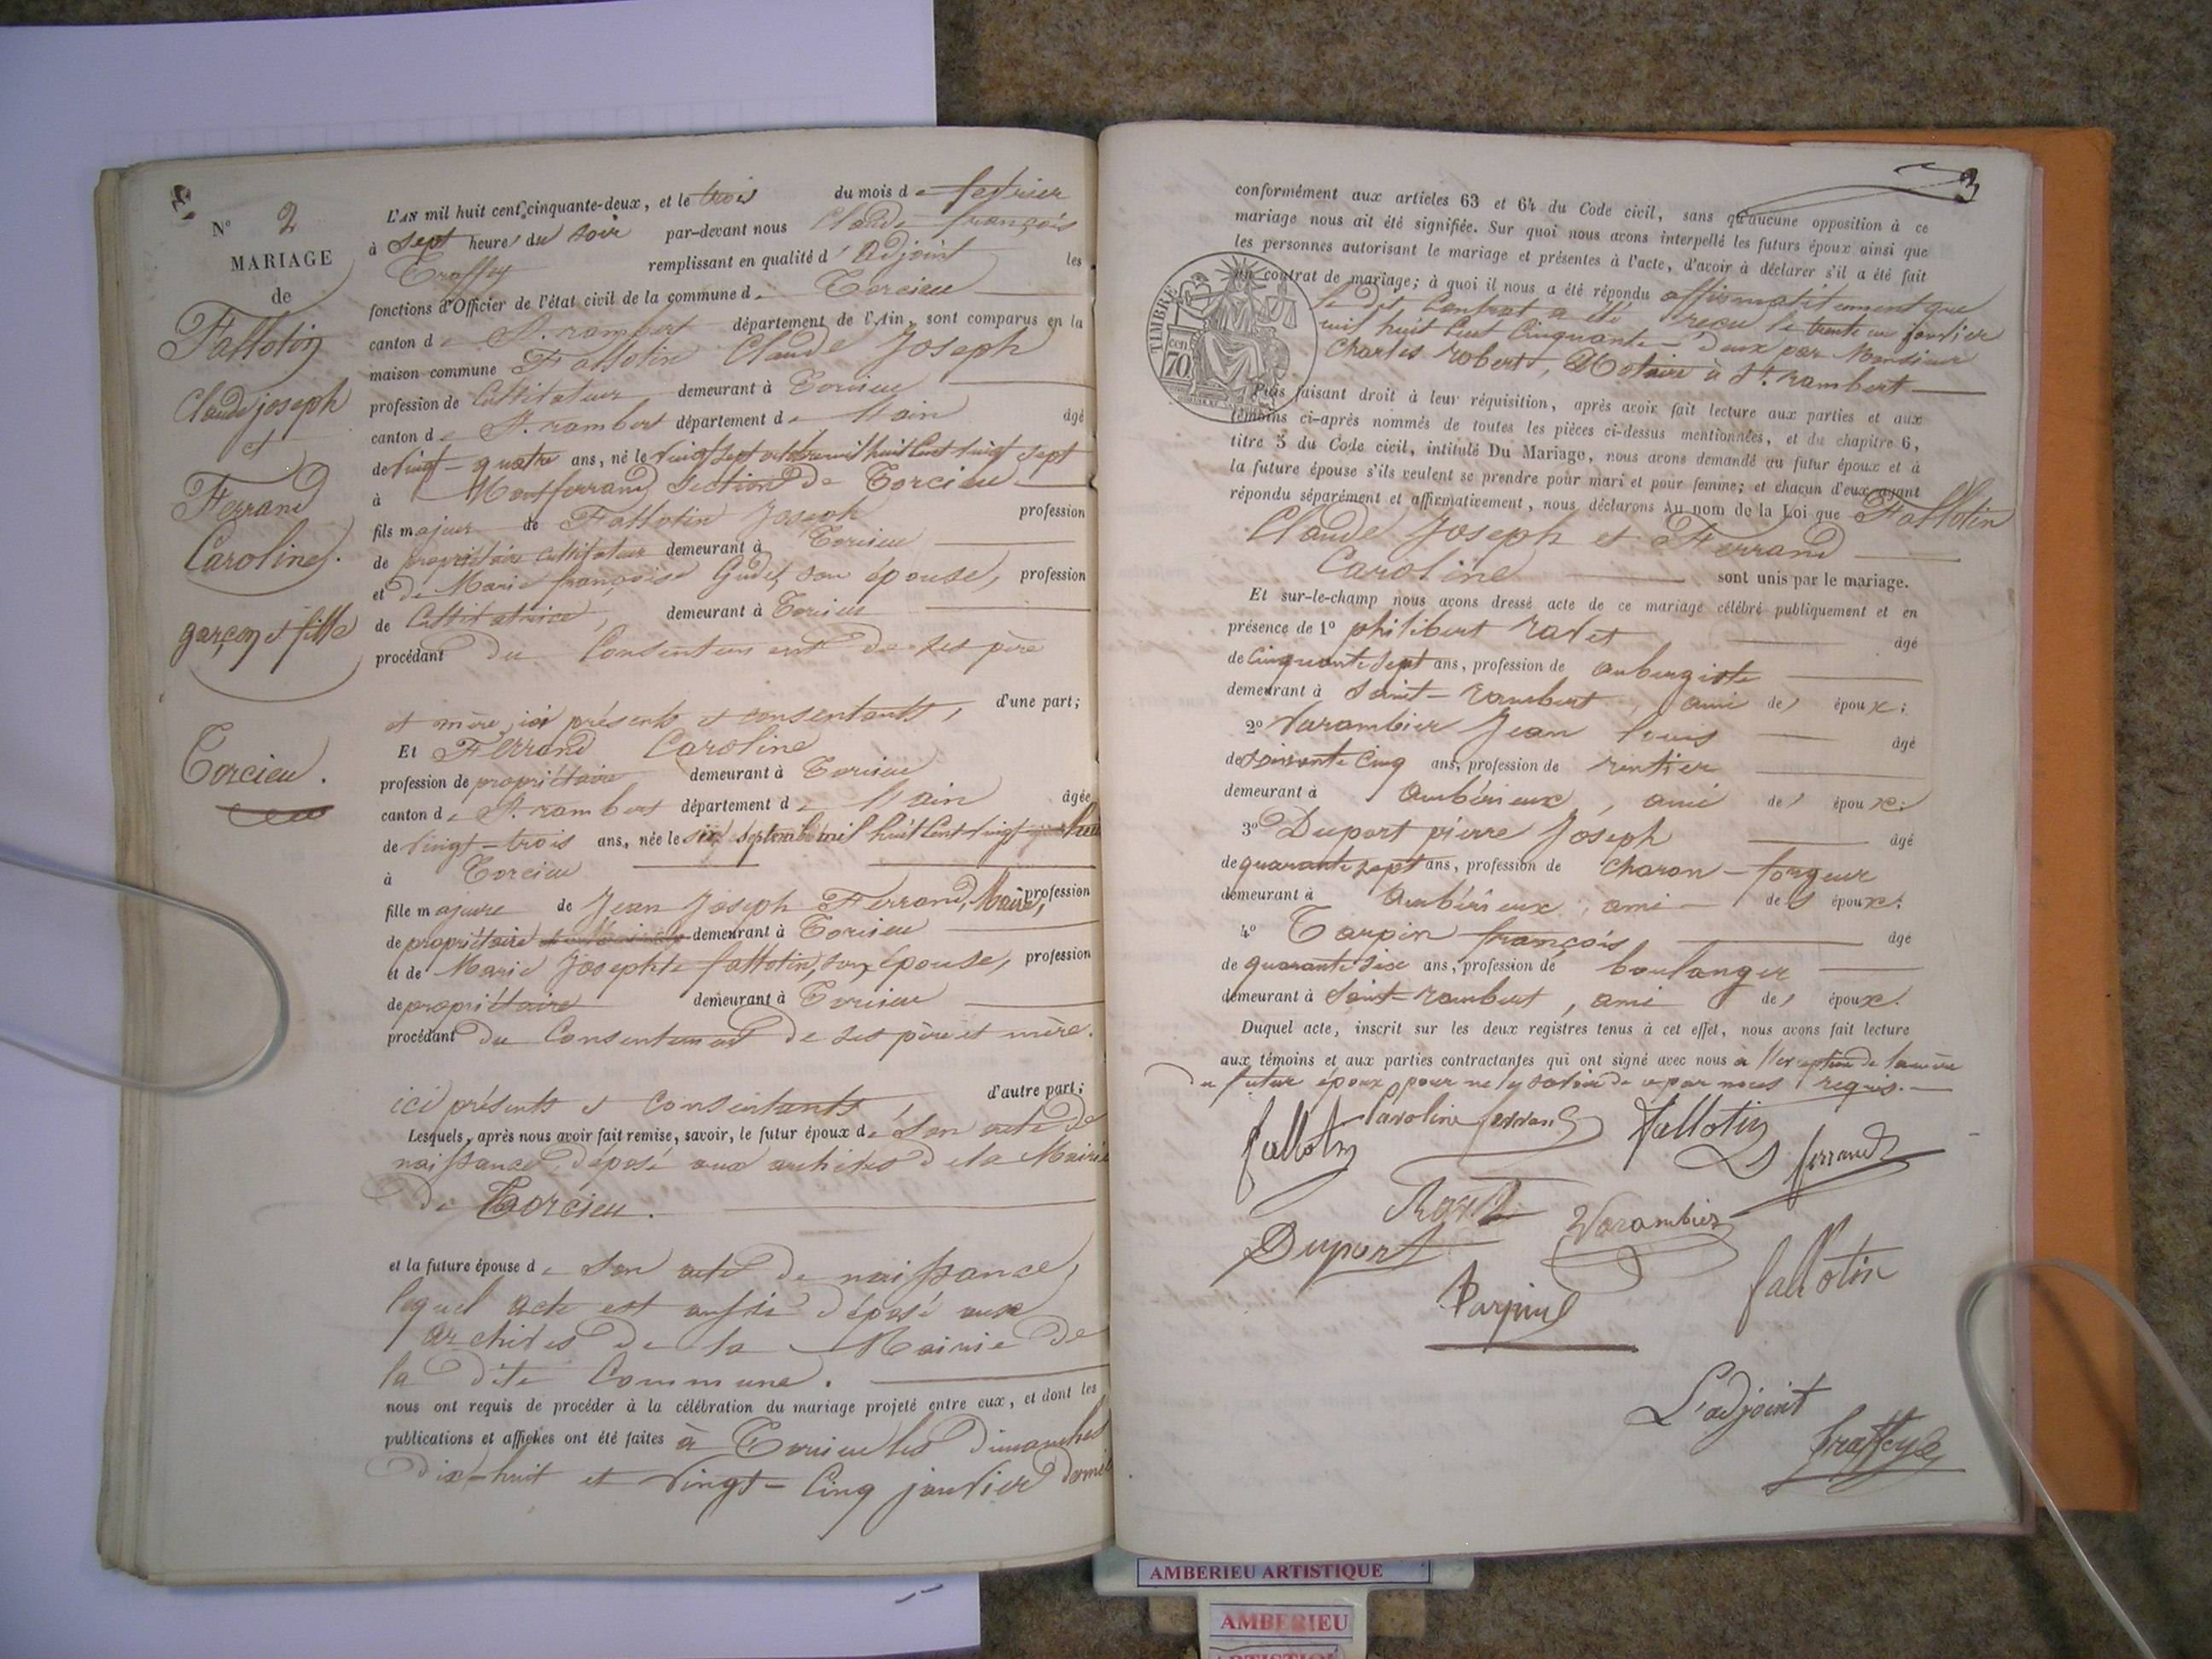 N° 2
MARIAGE
de
Fallotin
Claude joseph
et
Ferrand
Caroline.
garçon et fille
Torcieu.
L'AN mil huit cent cinquante-deux, et le trois du mois de fevrier
à sept heures du soir par-devant nous Claude françois
Traffay remplissant en qualité d'adjoint les
fonctions d'Officier de l'état civil de la commune de Torcieu
canton de St. rambert département de l'Ain, sont comparus en la
maison commune Fallotin Claude Joseph
profession de Cultivateur demeurant à Torcieu
canton de St. rambert département de l'ain âgé
de vingt-quatre ans, né le vingt sept octobre mil huit Cent vingt sept
à Montferrand Section de Torcieu
fils majeur de Fallotin Joseph profession
de propriétaire cultivateur demeurant à Torcieu
et de Marie françoise Gudet, son épouse, profession
de Cultivatrice, demeurant à Torcieu
procédant du Consentement de ses père
et mère, ici présents et consentants, d'une part;
Et Ferrand Caroline
profession de propriétaire demeurant à Torcieu
canton de St. rambert département de l'ain âgée
de vingt-trois ans, née le six septembre mil huit Cent vingt huit
à Torcieu
fille majeure de Jean Joseph Ferrand, Maire, profession
de propriétaire demeurant à Torcieu
et de Marie Josephte fallotin, son épouse, profession
de propriétaire demeurant à Torcieu
procédant du Consentement de ses père et mère.
ici présents et consentants, d'autre part;
Lesquels, après nous avoir fait remise, savoir, le futur époux de Son acte de
naissance, déposé aux archives de la Mairie
de Torcieu.
et la future épouse de Son acte de naissance,
lequel acte est aussi déposé aux
archives de la Mairie de
la dite Commune.
nous ont requis de procéder à la célébration du mariage projeté entre eux, et dont les
publications et affiches ont été faites à Torcieu les dimanches
dix-huit et vingt-Cinq janvier dernier
3
conformément aux articles 63 et 64 du Code civil, sans qu'aucune opposition à ce
mariage nous ait été signifiée. Sur quoi nous avons interpellé les futurs époux ainsi que
les personnes autorisant le mariage et présentes à l'acte, d'avoir à déclarer s'il a été fait
un contrat de mariage; à quoi il nous a été répondu affirmativement que
le dit Contrat a été reçu le trente un janvier
mil huit Cent Cinquante-Deux par Monsieur
Charles robert, Notaire à St. rambert
TIMBRE
70 cen
Puis faisant droit à leur réquisition, après avoir fait lecture aux parties et aux
témoins ci-après nommés de toutes les pièces ci-dessus mentionnées, et du chapitre 6,
titre 5 du Code civil, intitulé Du Mariage, nous avons demandé au futur époux et à
la future épouse s'ils veulent se prendre pour mari et pour femme; et chacun d'eux ayant
répondu séparément et affirmativement, nous déclarons Au nom de la Loi que Fallotin
Claude Joseph et Ferrand
Caroline sont unis par le mariage.
Et sur-le-champ nous avons dressé acte de ce mariage célébré publiquement et en
présence de 1° philibert ravet âgé
de Cinquante Sept ans, profession de aubergiste
demeurant à Saint-rambert, ami des époux;
2° Varambier Jean louis âgé
de Soixante Cinq ans, profession de rentier
demeurant à Ambérieux, ami des époux;
3° Duport pierre Joseph âgé
de quarante sept ans, profession de Charon-forgeur
demeurant à Ambérieux, ami des époux.
4° Tarpin françois âgé
de quarante six ans, profession de boulanger
demeurant à Saint-rambert, ami des époux.
Duquel acte, inscrit sur les deux registres tenus à cet effet, nous avons fait lecture
aux témoins et aux parties contractantes qui ont signé avec nous à l'exception de la mère
du futur époux pour ne le savoir de ce par nous requis.
fallotin Caroline ferrand fallotin ferrand
Ravet
Duport Varambier
Tarpin fallotin
L'adjoint
traffay
AMBERIEU ARTISTIQUE
AMBERIEU
ARTISTIQUE